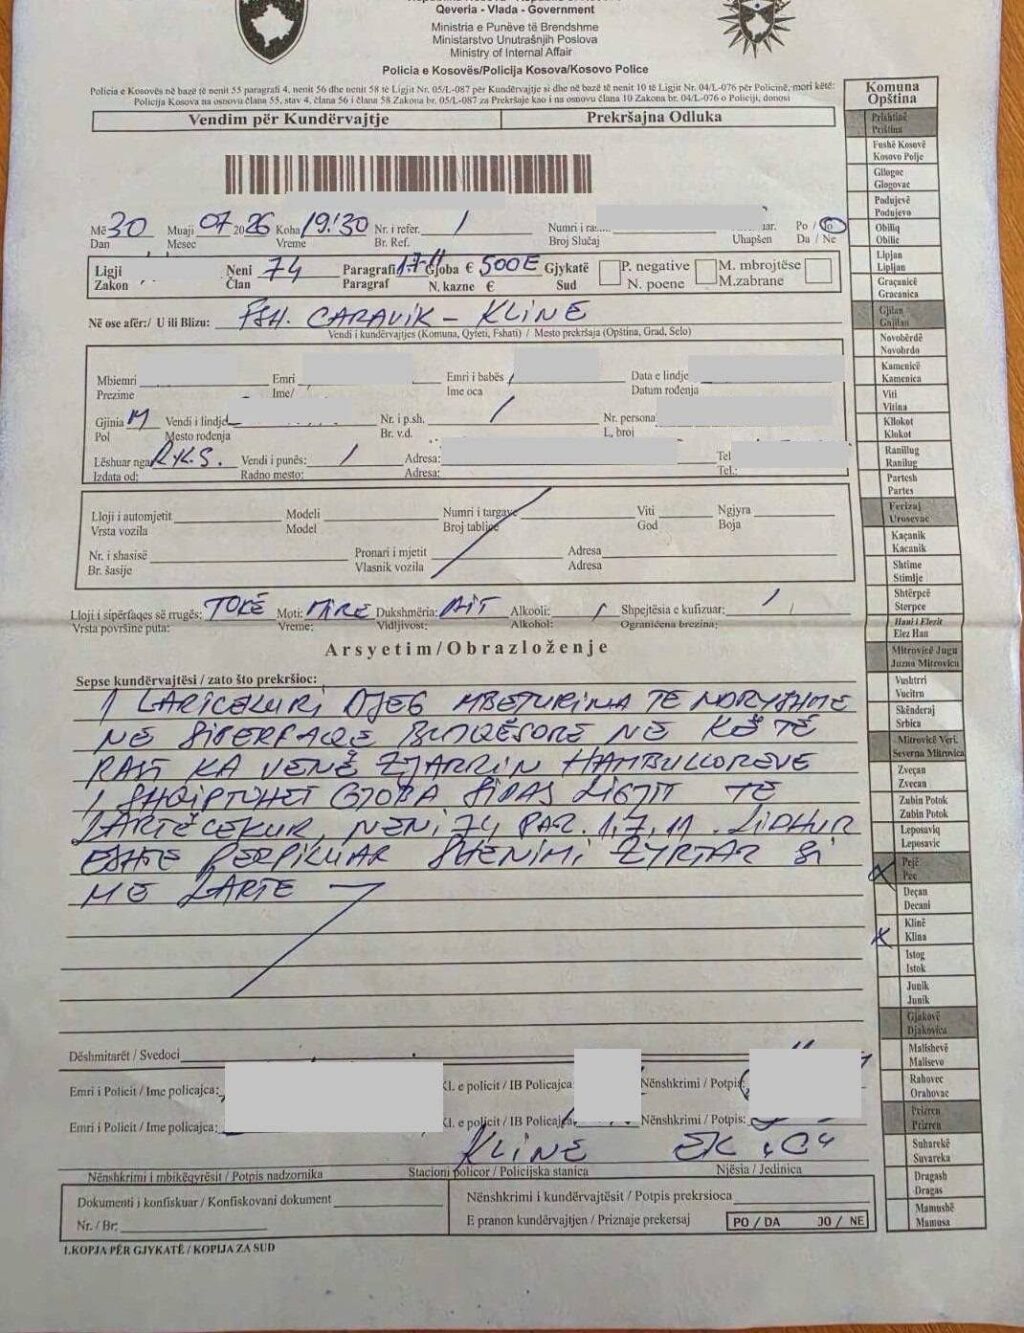 Qeveria - Vlada - Government
Ministria e Punëve të Brendshme
Ministarstvo Unutrašnjih Poslova
Ministry of Internal Affair
Policia e Kosovës/Policija Kosova/Kosovo Police
Policia e Kosovës në bazë të nenit 55 paragrafi 4, nenit 56 dhe nenit 58 të Ligjit Nr. 05/L-087 për Kundërvajtje si dhe në bazë të nenit 10 të Ligjit Nr. 04/L-076 për Policinë, mori këtë:
Policija Kosova na osnovu člana 55, stav 4, člana 56 i člana 58 Zakona br. 05/L-087 za Prekršaje kao i na osnovu člana 10 Zakona br. 04/L-076 o Policiji, donosi
Vendim për Kundërvajtje Prekršajna Odluka
Më 30 Muaji 07 2026 Koha 19:30 Nr. i refer. / Numri i ra Po / Jo
Dan Mesec Vreme Br. Ref. Broj Slučaj Uhapšen Da / Ne
Ligji Neni 74 Paragrafi 1.7.11 Gjoba € 500 € Gjykatë P. negative M. mbrojtëse
Zakon Član Paragraf N. kazne € Sud N. poene M.zabrane
Në ose afër:/ U ili Blizu: FSH. CARAVIK - KLINË
Vendi i kundërvajtjes (Komuna, Qyteti, Fshati) / Mesto prekršaja (Opština, Grad, Selo)
Mbiemri Emri Emri i babës Data e lindje
Prezime Ime/ Ime oca Datum rođenja
Gjinia M Vendi i lindje Nr. i p.sh. / Nr. persona
Pol Mesto rođenja Br. v.d. L. broj
Lëshuar nga R.K.S. Vendi i punës: / Adresa: Tel
Izdata od: Radno mesto: Adresa: Tel.:
Lloji i automjetit Modeli Numri i targave Viti Ngjyra
Vrsta vozila Model Broj tablice God Boja
Nr. i shasisë Pronari i mjetit Adresa
Br. šasije Vlasnik vozila Adresa
Lloji i sipërfaqes së rrugës: TOKË Moti: MIRE Dukshmëria: DIT Alkooli: / Shpejtësia e kufizuar: /
Vrsta površine puta: Vreme: Vidljivost: Alkohol: Ograničena brezina:
Arsyetim/Obrazloženje
Sepse kundërvajtësi / zato što prekršioc:
I LARTCEKURI DJEG MBETURINA TË NDRYSHME
NË SIPERFAQE BUJQËSORE NË KËTË
RAST KA VENË ZJARRIN HAMBULLOREVE
I SHQIPTOHET GJOBA SIPAS LIGJIT TË
LARTËCEKUR, NENI 74 PAR. 1,7,11. LIDHUR
ESHTE PERPILUAR SHENIMI ZYRTAR SI
ME LARTE
Dëshmitarët / Svedoci
Emri i Policit / Ime policajca: . e policit / IB Policajca Nënshkrimi / Potpis
Emri i Policit / Ime policajca: . e policit / IB Policajca Nënshkrimi / Potpis:
KLINË
Nënshkrimi i mbikëqyrësit / Potpis nadzornika Stacioni policor / Policijska stanica Njësia / Jedinica
Dokumenti i konfiskuar / Konfiskovani dokument Nënshkrimi i kundërvajtësit / Potpis prekrsioca
Nr. / Br: E pranon kundërvajtjen / Priznaje prekersaj PO / DA JO / NE
1.KOPJA PËR GJYKATË / KOPIJA ZA SUD
Komuna
Opština
Prishtinë
Priština
Fushë Kosovë
Kosovo Polje
Gllogoc
Glogovac
Podujevë
Podujevo
Obiliq
Obilic
Lipjan
Lipljan
Graçanicë
Gracanica
Gjilan
Gnjilan
Novobërdë
Novobrdo
Kamenicë
Kamenica
Viti
Vitina
Kllokot
Klokot
Ranillug
Ranilug
Partesh
Partes
Ferizaj
Urosevac
Kaçanik
Kacanik
Shtime
Stimlje
Shtërpcë
Sterpce
Hani i Elezit
Elez Han
Mitrovicë Jugu
Juzna Mitrovica
Vushtrri
Vucitrn
Skënderaj
Srbica
Mitrovicë Veri.
Severna Mitrovica
Zveçan
Zvecan
Zubin Potok
Zubin Potok
Leposaviq
Leposavic
Pejë
Pec
Deçan
Decani
Klinë
Klina
Istog
Istok
Junik
Junik
Gjakovë
Djakovica
Malishevë
Malisevo
Rahovec
Orahovac
Prizren
Prizren
Suharekë
Suvareka
Dragash
Dragas
Mamushë
Mamusa